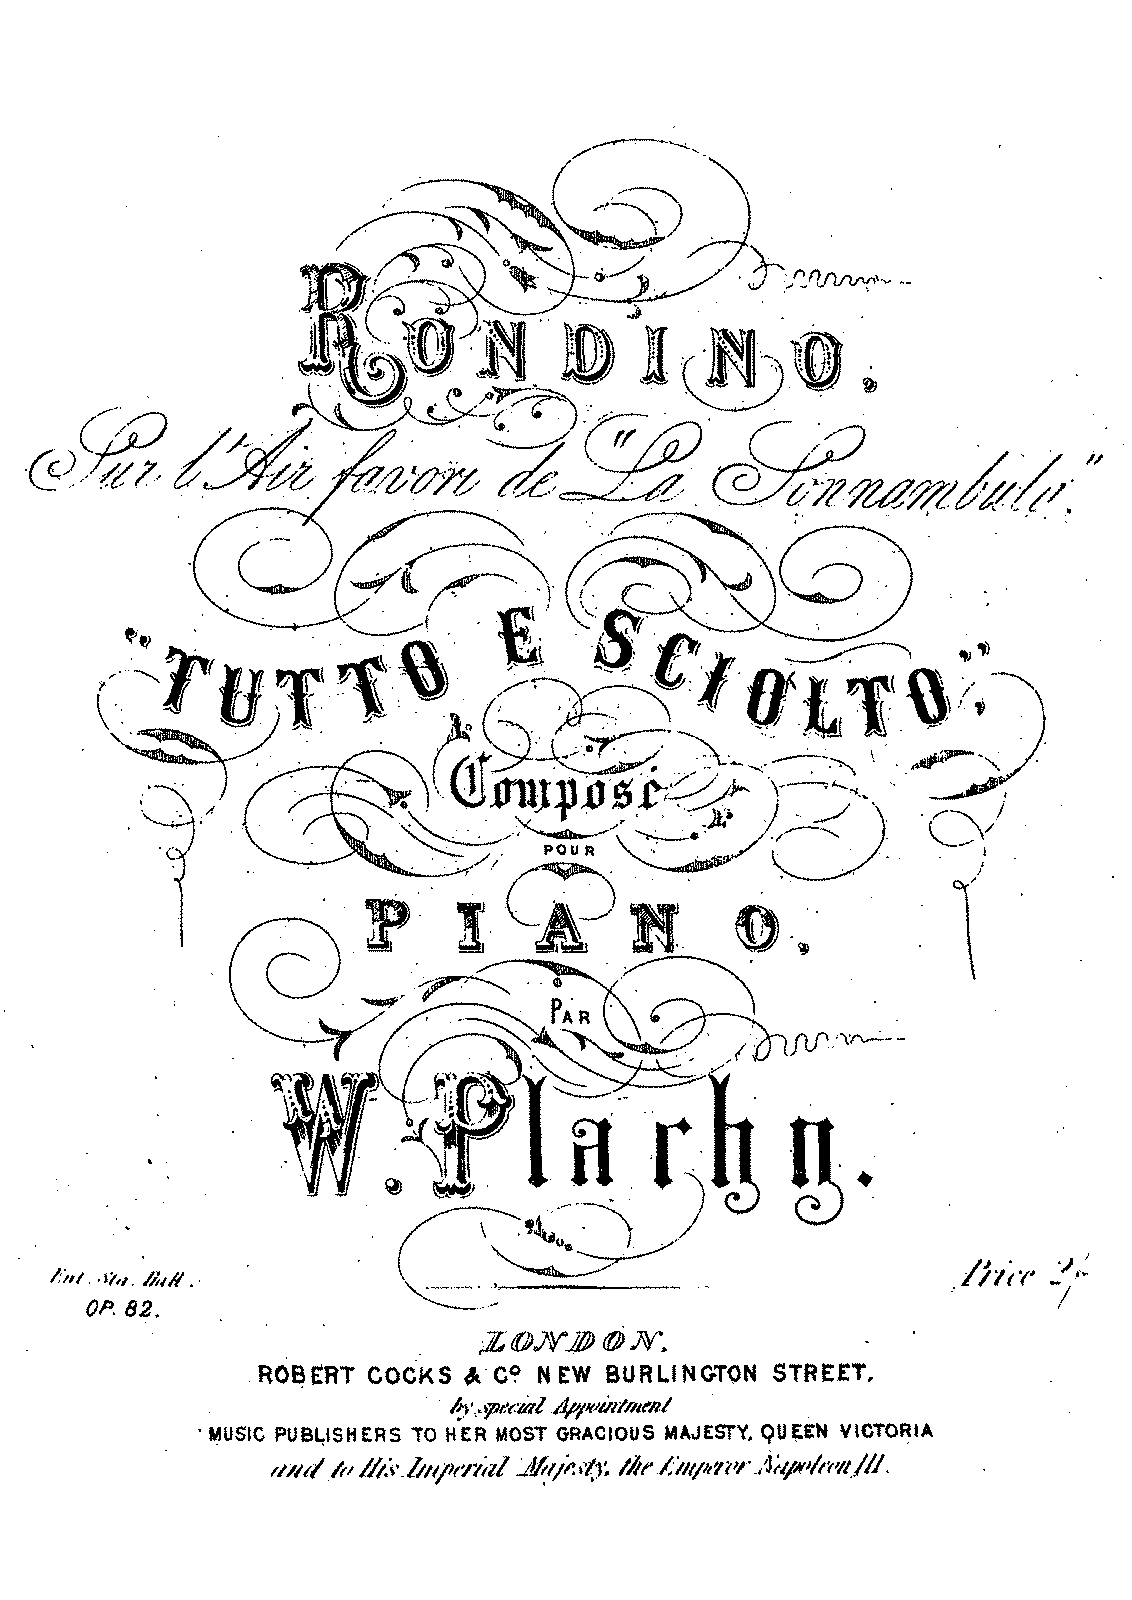 RONDINO.
Sur l'Air favori de "La Sonnambula."
"TUTTO E SCIOLTO."
Composé
POUR
PIANO,
PAR
W. Plachy.
Ent. Sta. Hall.
Price 2/-
OP. 82.
LONDON.
ROBERT COCKS & Co. NEW BURLINGTON STREET.
by special Appointment
MUSIC PUBLISHERS TO HER MOST GRACIOUS MAJESTY, QUEEN VICTORIA
and to His Imperial Majesty, the Emperor Napoleon III.